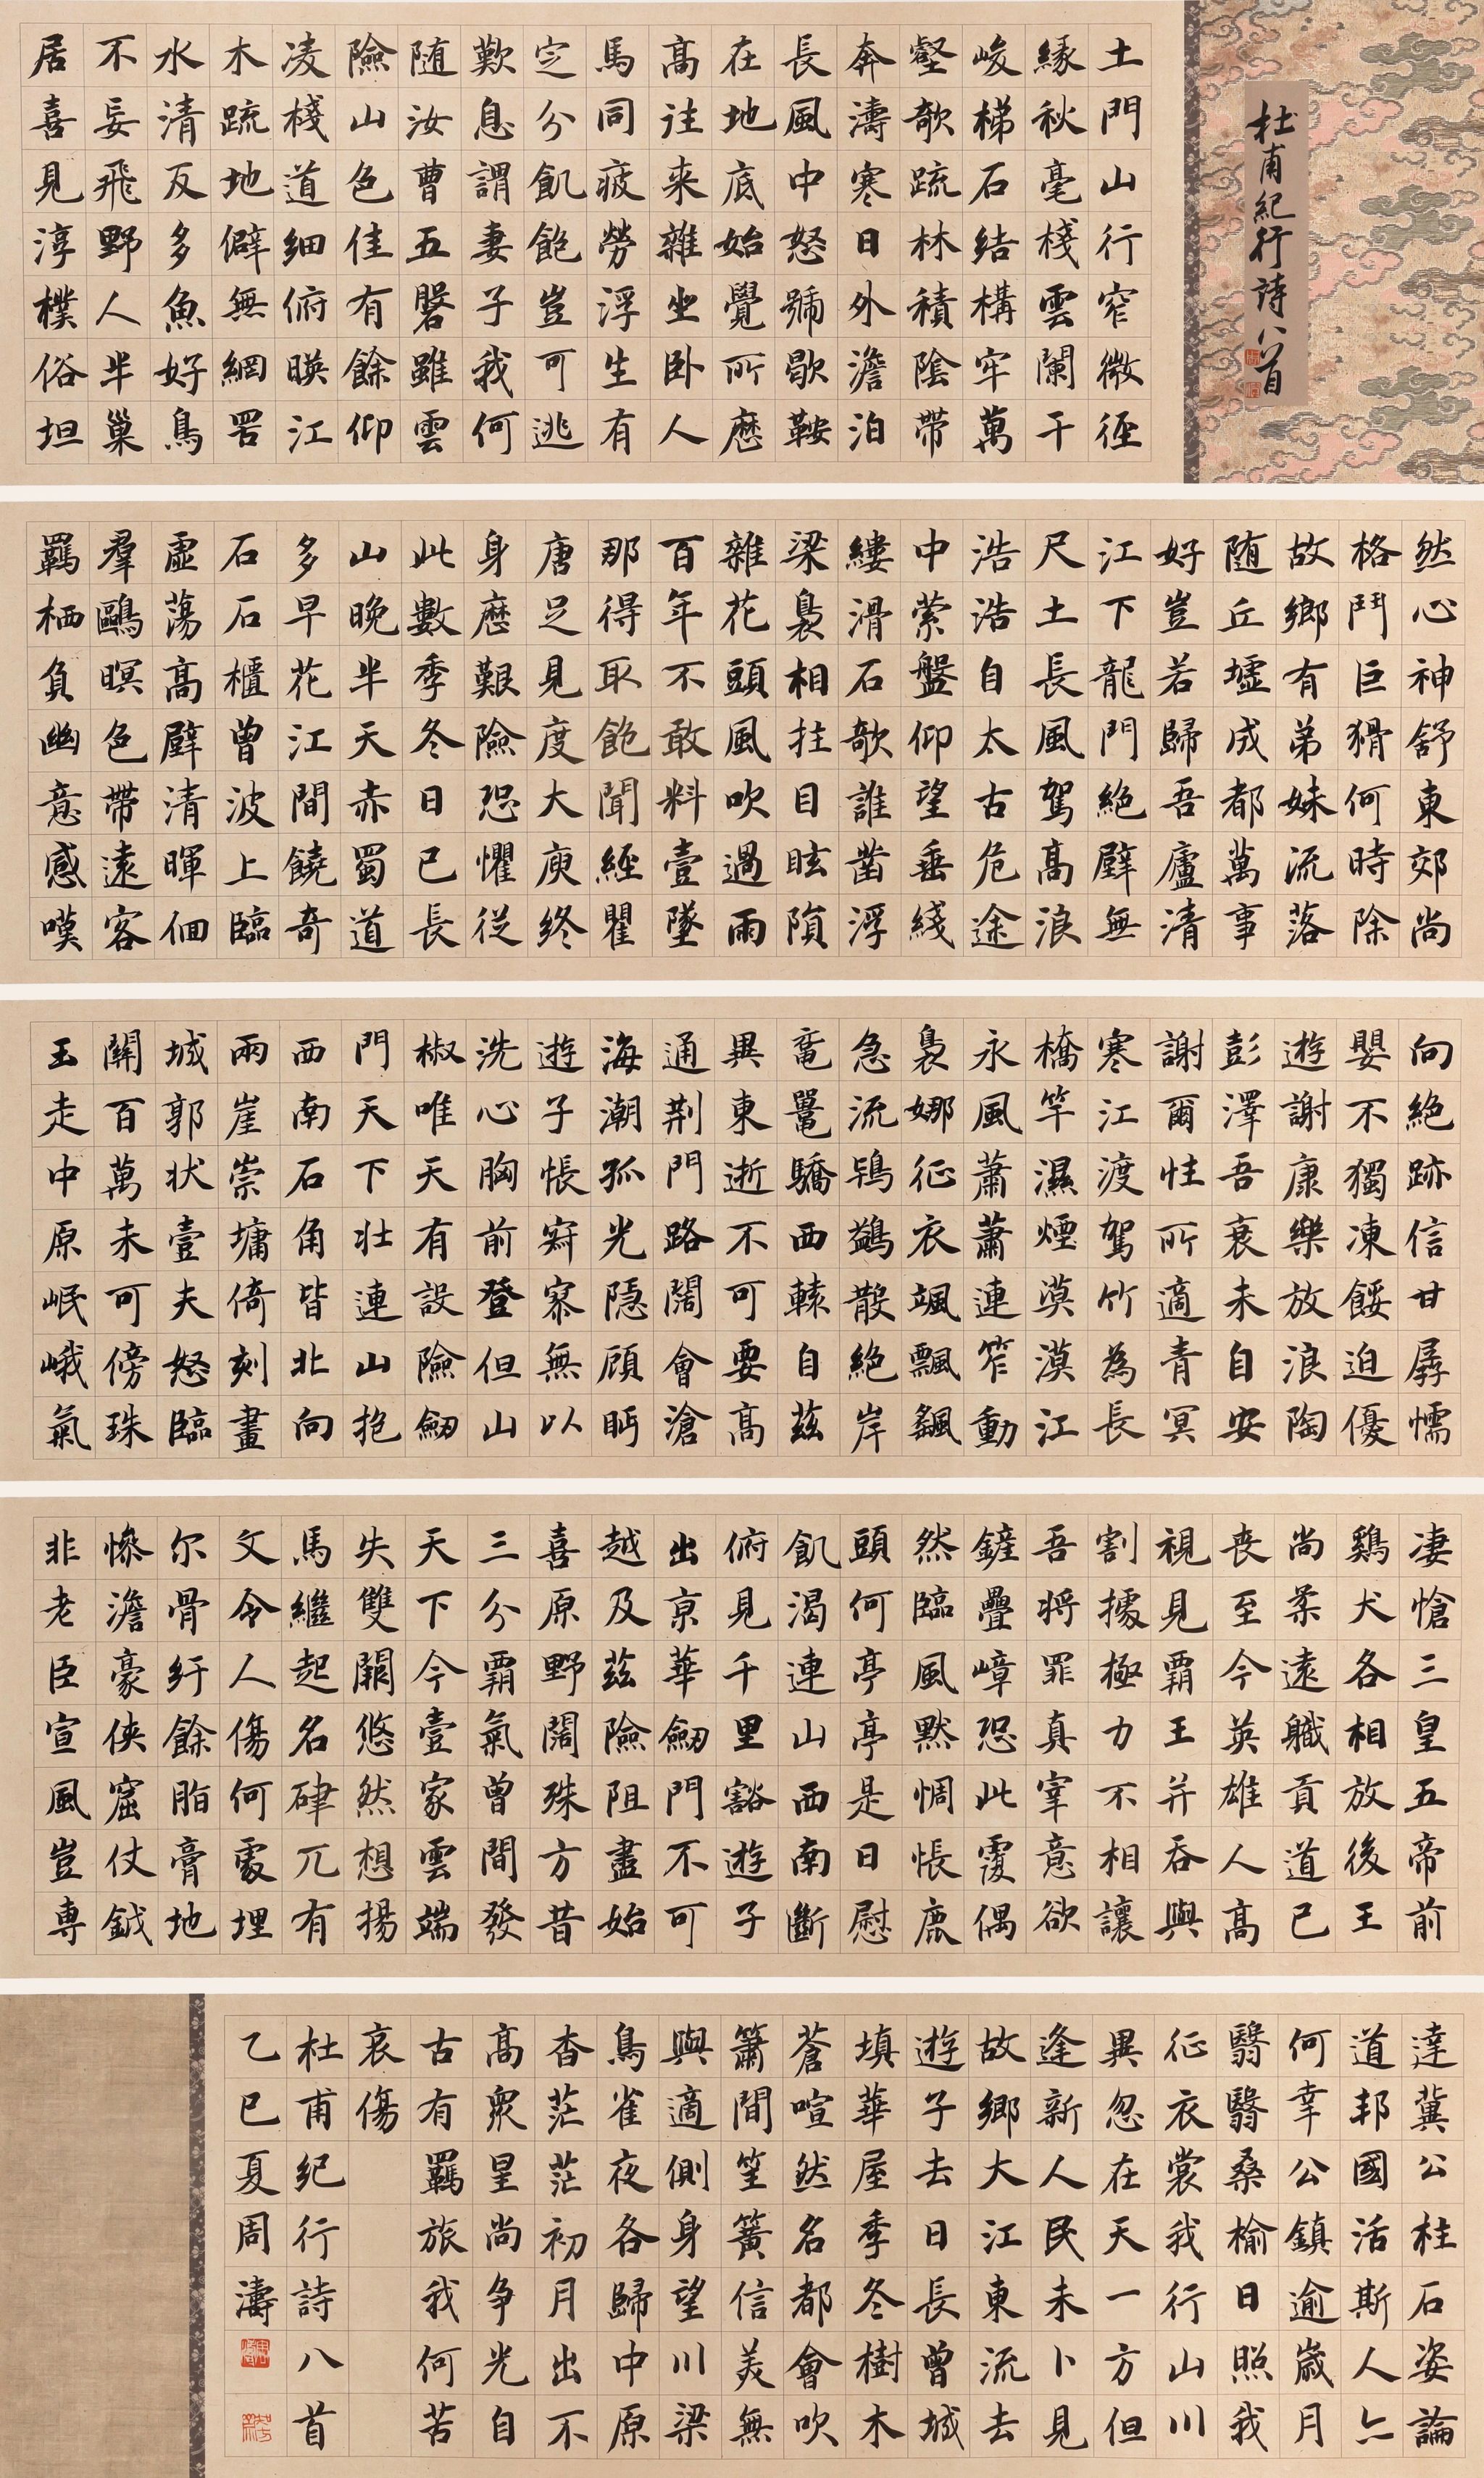 杜甫紀行詩八首
土門山行窄微徑
緣秋毫棧雲闌干
峻梯石結構牢萬
壑欹疏林積陰帶
奔濤寒日外澹泊
長風中怒號歇鞍
在地底始覺所歷
高往來雜坐臥人
馬同疲勞浮生有
定分飢飽豈可逃
歎息謂妻子我何
隨汝曹五磐雖雲
險山色佳有餘仰
凌棧道細俯暎江
木疏地僻無網罟
水清反多魚好鳥
不妄飛野人半巢
居喜見淳樸俗坦
然心神舒東郊尚
格鬥巨猾何時除
故鄉有弟妹流落
隨丘墟成都萬事
好豈若歸吾廬清
江下龍門絕壁無
尺土長風駕高浪
浩浩自太古危途
中縈盤仰望垂綫
縷滑石欹誰鑿浮
梁裊相拄目眩隕
雜花頭風吹過雨
百年不敢料壹墜
那得取飽聞經瞿
唐足見度大庾終
身歷艱險恐懼從
此數季冬日已長
山晚半天赤蜀道
多早花江間饒奇
石石櫃曾波上臨
虛蕩高壁清暉佪
羣鷗暝色帶遠客
羈栖負幽意感嘆
向絕跡信甘孱懦
嬰不獨凍餒迫優
遊謝康樂放浪陶
彭澤吾衰未自安
謝爾性所適青冥
寒江渡駕竹為長
橋竿濕煙漠漠江
永風蕭蕭連笮動
裊娜征衣颯飄颻
急流鴇鷁散絕岸
黿鼉驕西轅自茲
異東逝不可要高
通荊門路闊會滄
海潮孤光隱顧眄
遊子悵寂寥無以
洗心胸前登但山
椒唯天有設險劒
門天下壯連山抱
西南石角皆北向
兩崖崇墉倚刻畫
城郭狀壹夫怒臨
關百萬未可傍珠
玉走中原岷峨氣
淒愴三皇五帝前
鷄犬各相放後王
尚柔遠職貢道已
喪至今英雄人高
視見霸王并吞與
割據極力不相讓
吾將罪真宰意欲
鏟疊嶂恐此復偶
然臨風默惆悵鹿
頭何亭亭是日慰
飢渴連山西南斷
俯見千里豁遊子
出京華劒門不可
越及茲險阻盡始
喜原野闊殊方昔
三分霸氣曾間發
天下今壹家雲端
失雙闕悠然想揚
馬繼起名硉兀有
文令人傷何處埋
尔骨紆餘脂膏地
慘澹豪俠窟仗鉞
非老臣宣風豈專
達冀公柱石姿論
道邦國活斯人亦
何幸公鎮逾歲月
翳翳桑榆日照我
征衣裳我行山川
異忽在天一方但
逢新人民未卜見
故鄉大江東流去
遊子去日長曾城
填華屋季冬樹木
蒼喧然名都會吹
簫間笙簧信美無
與適側身望川梁
鳥雀夜各歸中原
杳茫茫初月出不
高衆星尚爭光自
古有羈旅我何苦
哀傷
杜甫紀行詩八首
乙巳夏周濤